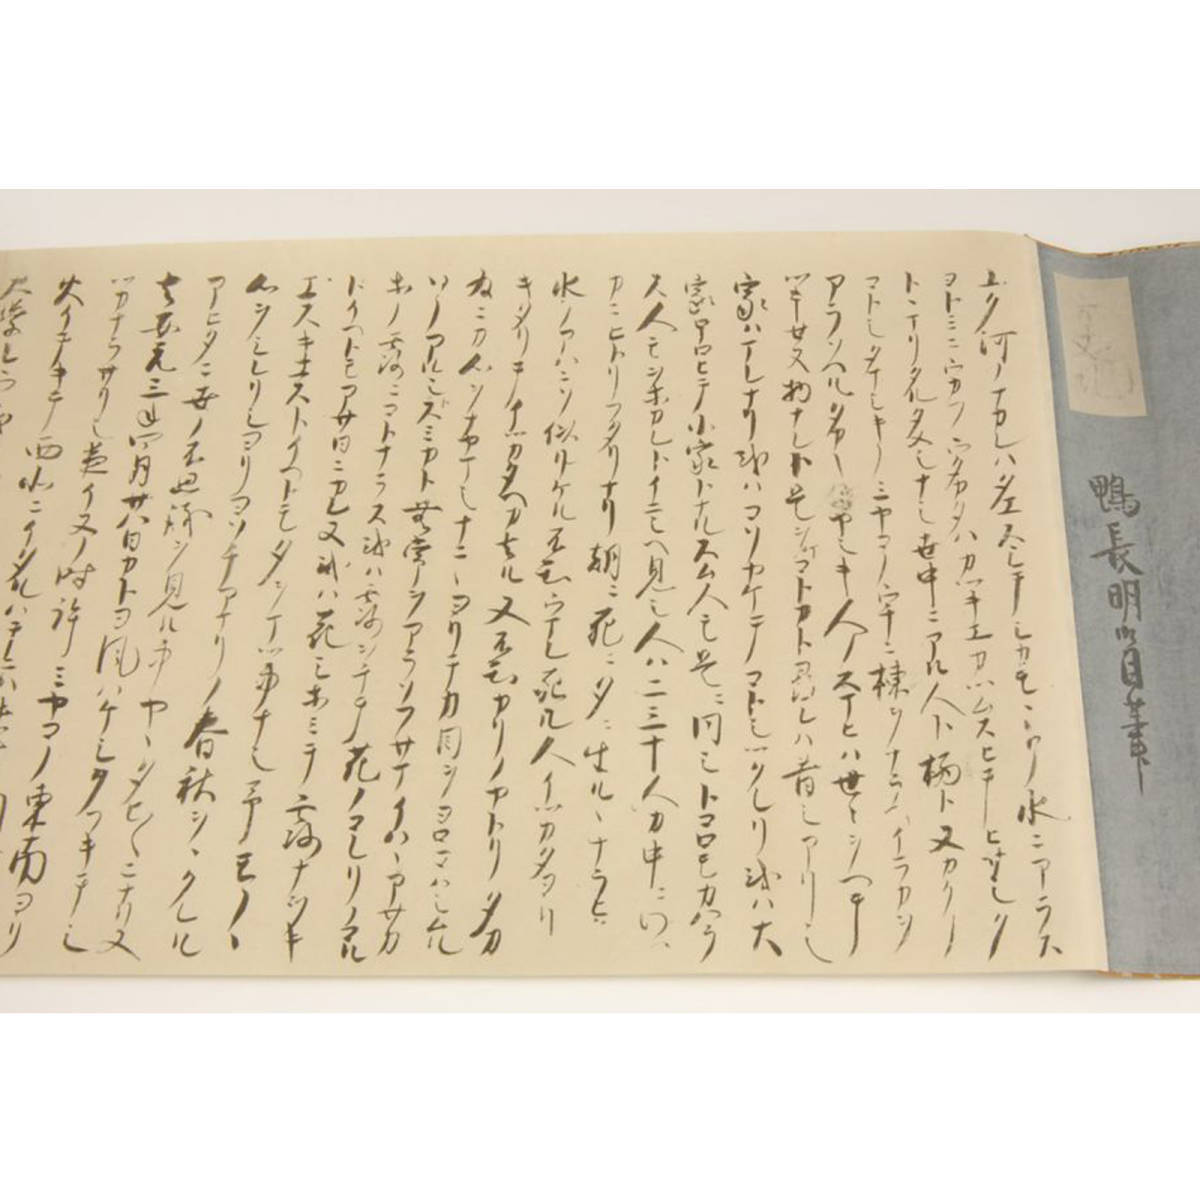 方丈記
鴨長明自筆
ユク河ノナカレハタエスシテシカモヽトノ水ニアラス
ヨトミニウカフウタカタハカツキエカツムスヒテヒサシク
トヽマリタルタメシナシ世中ニアル人ト栖ト又カクノ
コトシタマシキノミヤコノウチニ棟ヲナラヘイラカヲ
アラソヘルタカキイヤシキ人ノスマヒハ世々ヲヘテ
ツキセヌ物ナレト是ヲマコトカト尋レハ昔シアリシ
家ハマレナリ或ハコソヤケテコトシツクレリ或ハ大
家ホロヒテ小家トナルスム人モ是ニ同シトコロモカハラ
ス人モヲホカレトイニシヘ見シ人ハ二三十人カ中ニワツ
カニヒトリフタリナリ朝ニ死ニ夕ニ生ルヽナラヒ
水ノアハニソ似リケル不知ウマレ死ル人イツカタヨリ
キタリテイツカタヘカ去ル又不知カリノヤトリタカ
為ニカ心ヲナヤマシナニヽヨリテカ目ヲヨロコハシムル
ソノアルシトスミカト無常ヲアラソフサマイハヽアサカ
ホノ露ニコトナラス或ハ露ヲチテ花ノコレリノコル
トイヘトモアサ日ニカレヌ或ハ花シホミテ露ナヲキ
エスキエストイヘトモタヲマツ事ナシ予モノヽ
心ヲシレリシヨリヨソチアマリノ春秋ヲヽクレル
アヒタニ世ノ不思議ヲ見ル事ヤヽタヒ〱ニナリヌ
去安元三年四月廿八日カトヨ風ハケシクフキテシ
ツカナラサリシ夜イヌノ時許ミヤコノ東南ヨリ
火イテキテ西北ニイタルハテニハ